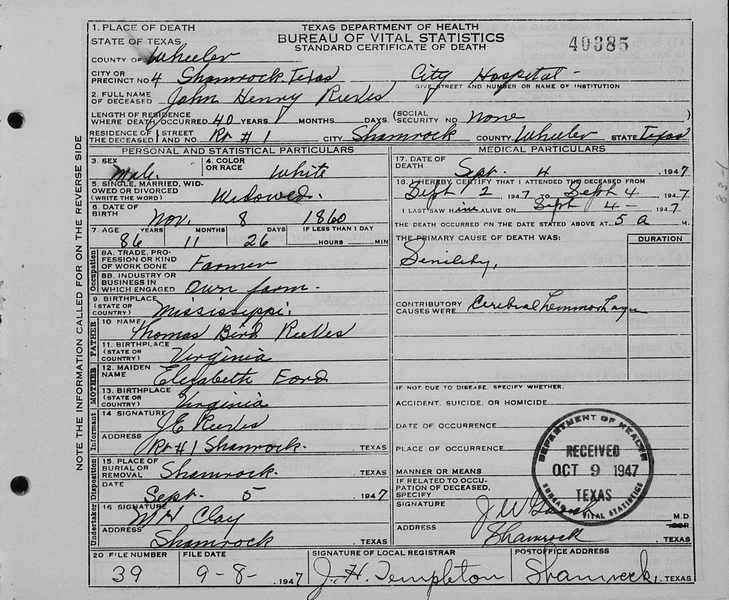 1. PLACE OF DEATH
STATE OF TEXAS
TEXAS DEPARTMENT OF HEALTH
BUREAU OF VITAL STATISTICS
STANDARD CERTIFICATE OF DEATH
40385
COUNTY OF Wheeler
CITY OR PRECINCT NO. 4 Shamrock, Texas City Hospital -
GIVE STREET AND NUMBER OR NAME OF INSTITUTION
2. FULL NAME OF DECEASED John Henry Reeves
LENGTH OF RESIDENCE WHERE DEATH OCCURRED 40 YEARS MONTHS DAYS (SOCIAL SECURITY NO. None
RESIDENCE OF THE DECEASED STREET AND NO. Rt #1 CITY Shamrock COUNTY Wheeler STATE Texas
PERSONAL AND STATISTICAL PARTICULARS
3. SEX Male
4. COLOR OR RACE White
5. SINGLE, MARRIED, WIDOWED OR DIVORCED (WRITE THE WORD) Widowed.
6. DATE OF BIRTH Nov. 8 1860
7 AGE YEARS MONTHS DAYS IF LESS THAN 1 DAY
86 11 26 HOURS MIN
Occupation
8A. TRADE, PROFESSION OR KIND OF WORK DONE Farmer
8B. INDUSTRY OR BUSINESS IN WHICH ENGAGED Own farm.
9. BIRTHPLACE (STATE OR COUNTRY) Mississippi
FATHER
10 NAME Thomas Bird Reeves
11. BIRTHPLACE (STATE OR COUNTRY) Virginia
MOTHER
12. MAIDEN NAME Elizabeth Ford
13. BIRTHPLACE (STATE OR COUNTRY) Virginia
Informant
14 SIGNATURE J E Reeves
ADDRESS Rt #1 Shamrock. TEXAS
Disposition
15. PLACE OF BURIAL OR REMOVAL Shamrock. TEXAS
DATE Sept. 5 1947
Undertaker
16 SIGNATURE M H Clay
ADDRESS Shamrock TEXAS
MEDICAL PARTICULARS
17. DATE OF DEATH Sept. 4 1947
18. I HEREBY CERTIFY THAT I ATTENDED THE DECEASED FROM
Sept 1 2 1947 TO Sept 4 1947
I LAST SAW him ALIVE ON Sept 4 - 1947
THE DEATH OCCURRED ON THE DATE STATED ABOVE AT 5 a M.
THE PRIMARY CAUSE OF DEATH WAS: DURATION
Senility,
CONTRIBUTORY CAUSES WERE Cerebral Hemmorhage
IF NOT DUE TO DISEASE, SPECIFY WHETHER,
ACCIDENT, SUICIDE, OR HOMICIDE
DATE OF OCCURRENCE
PLACE OF OCCURRENCE
MANNER OR MEANS
IF RELATED TO OCCUPATION OF DECEASED, SPECIFY
SIGNATURE J W M.D
ADDRESS Shamrock TEXAS
DEPARTMENT OF HEALTH
RECEIVED
OCT 9 1947
TEXAS
BUREAU OF VITAL STATISTICS
20 FILE NUMBER FILE DATE SIGNATURE OF LOCAL REGISTRAR POSTOFFICE ADDRESS
39 9-8- 1947 J. H. Templeton Shamrock, TEXAS
NOTE THE INFORMATION CALLED FOR ON THE REVERSE SIDE